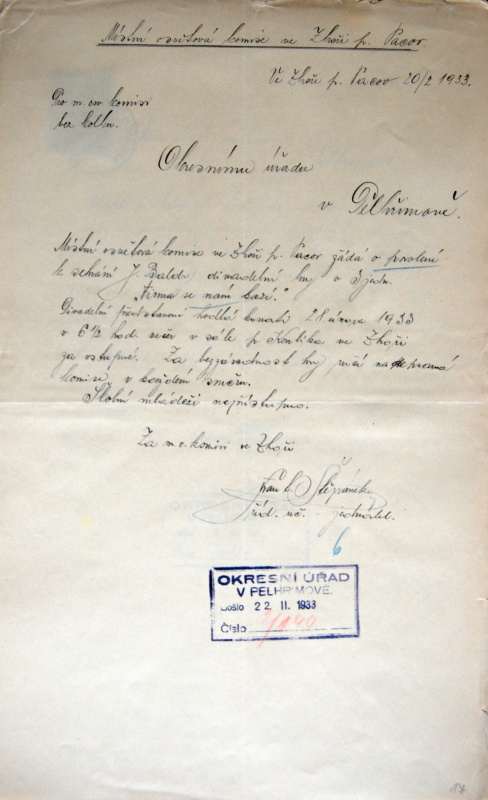 Místní osvětová komise ve Zhoři p. Pacov.
Ve Zhoři p. Pacov 20/2 1933.
Pro m. osv. komisi
bez kolku.
Okresnímu úřadu
v Pelhřimově.
Místní osvětová komise ve Zhoři p. Pacov žádá o povolení
k sehrání J. Balda divadelní hry o 3 jedn.
"Firma se nám kazí."
Divadelní představení hodlá konati 28 února 1933
v 6 1/2 hod. večer v sále p. Kentika ve Zhoři
za vstupné. Za bezzávadnost hry ručí
komise v každém směru.
Školní mládeži nepřístupno.
Za m. o. komisi ve Zhoři
Frant. Štěpánek
říd. uč. jednatel.
6
OKRESNÍ ÚŘAD
V PELHŘIMOVĚ.
Došlo 22 II. 1933
Číslo